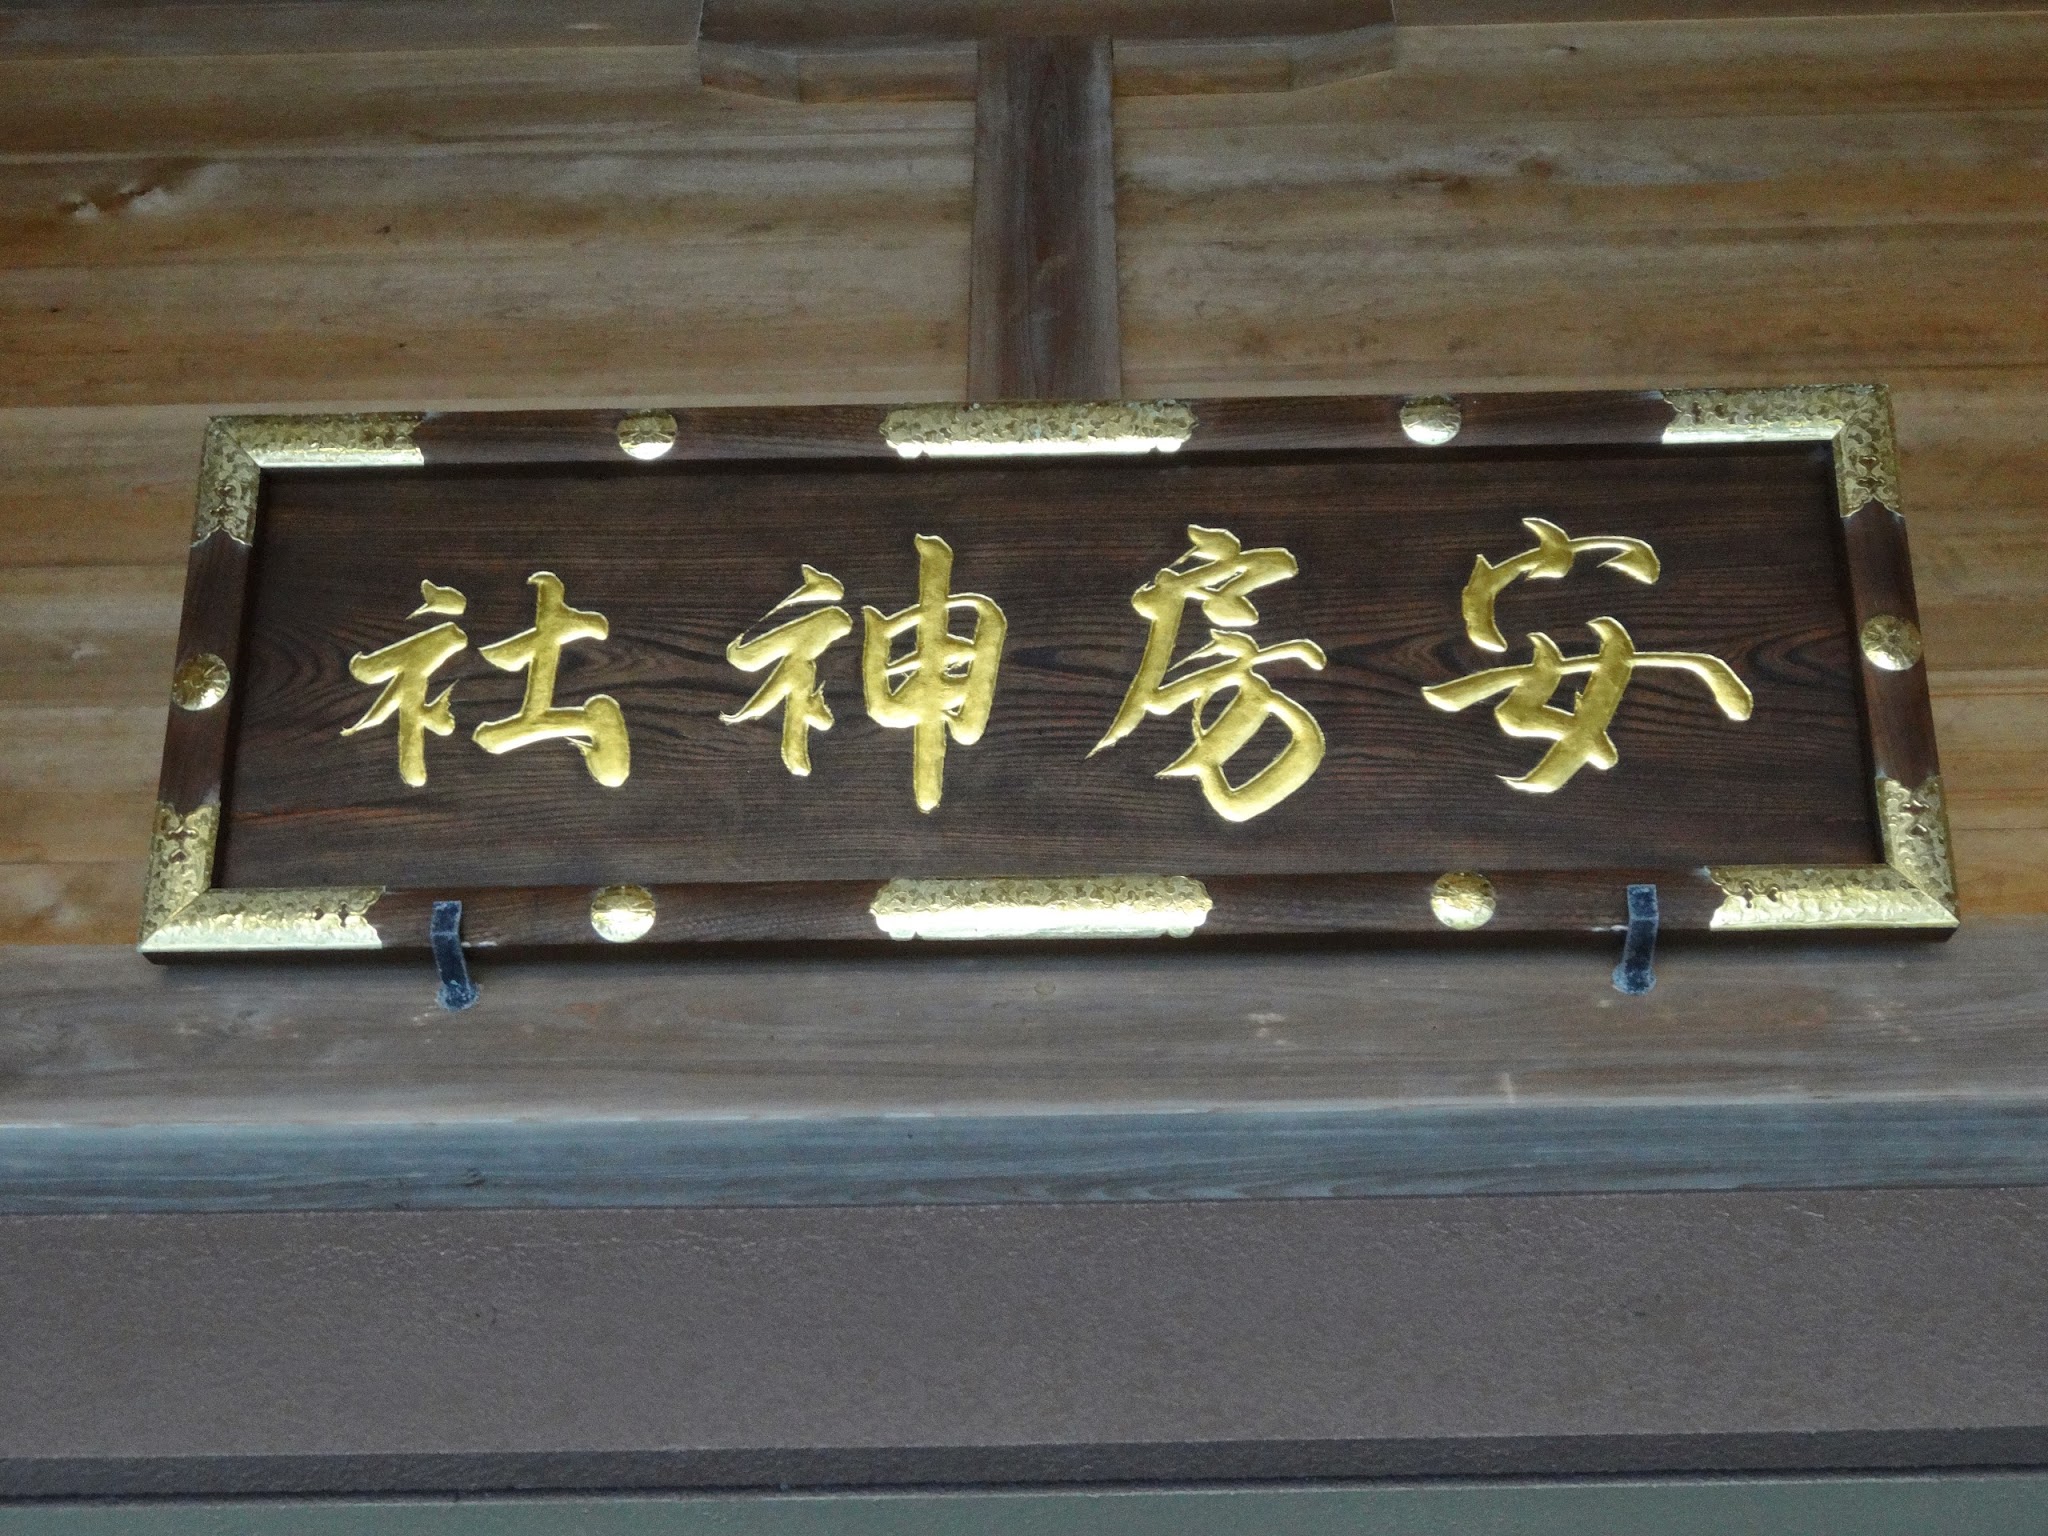 安房神社